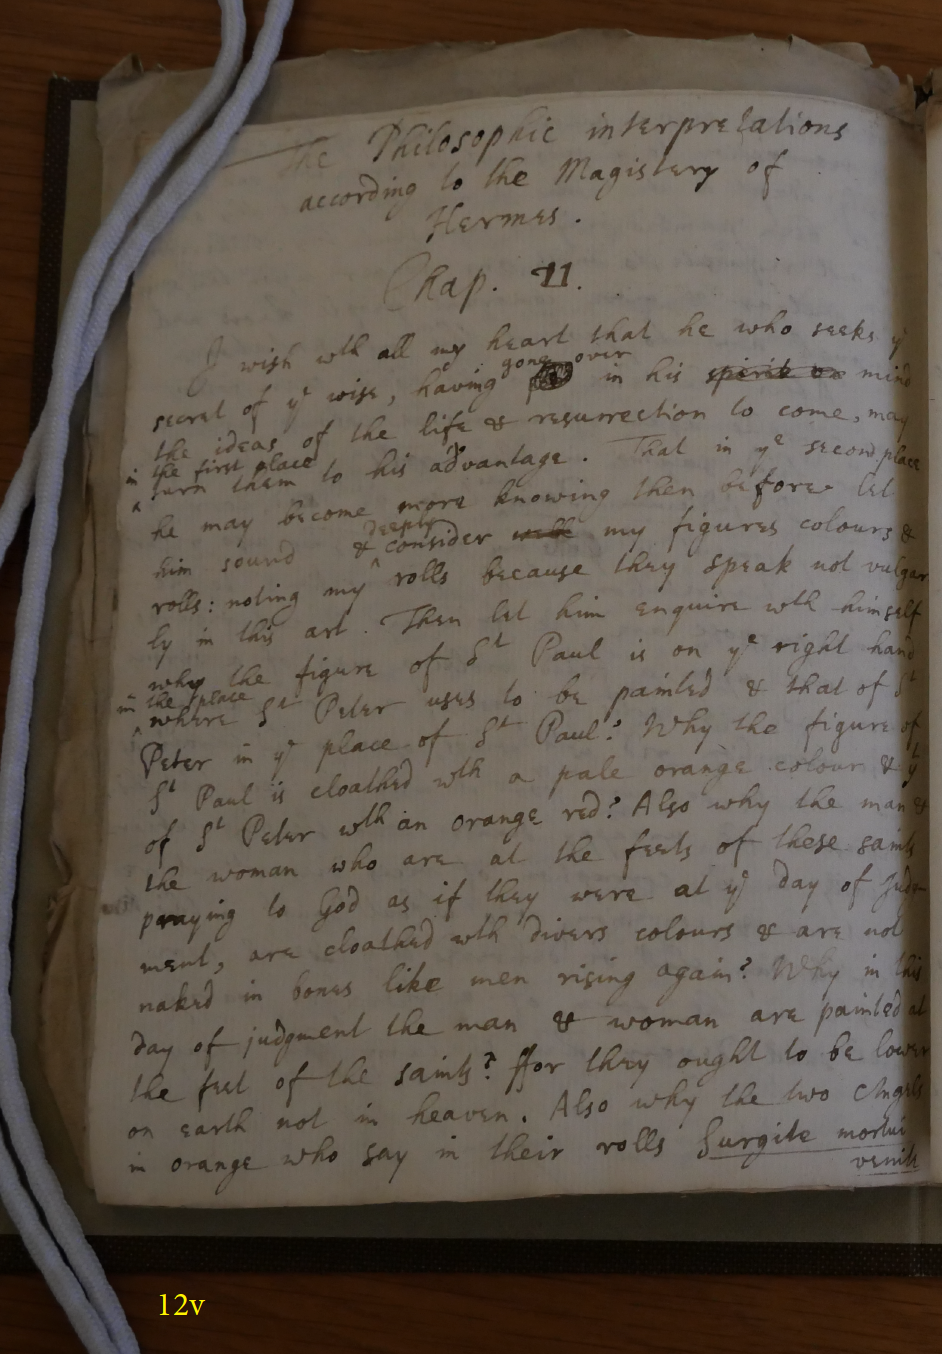 The Philosophic interpretations
according to the Magistery of
Hermes.
Chap. II.
I wish wth all my heart that he who seeks ye
secret of ye wise, having gone over in his spirit or mind
the ideas of the life & resurrection to come, may
in the first place
turn them to his advantage. That in ye second place
he may become more knowing then before let
him sound & deeply consider well my figures colours &
rolls: noting my rolls because they speak not vulgar
ly in this art. Then let him enquire wth himself
why the figure of St Paul is on ye right hand
in the place
where St Peter uses to be painted & that of St
Peter in ye place of St Paul? Why the figure of
St Paul is cloathed wth a pale orange colour & yt
of St Peter wth an orange red? Also why the man &
the woman who are at the feets of these saints
praying to God as if they were at ye day of Judg
ment, are cloathed wth divers colours & are not
naked in bones like men rising again? Why in this
day of judgment the man & woman are painted at
the feet of the saints? ffor they ought to be lower
on earth not in heaven. Also why the two Angels
in orange who say in their rolls Surgite mortui
venite
12v